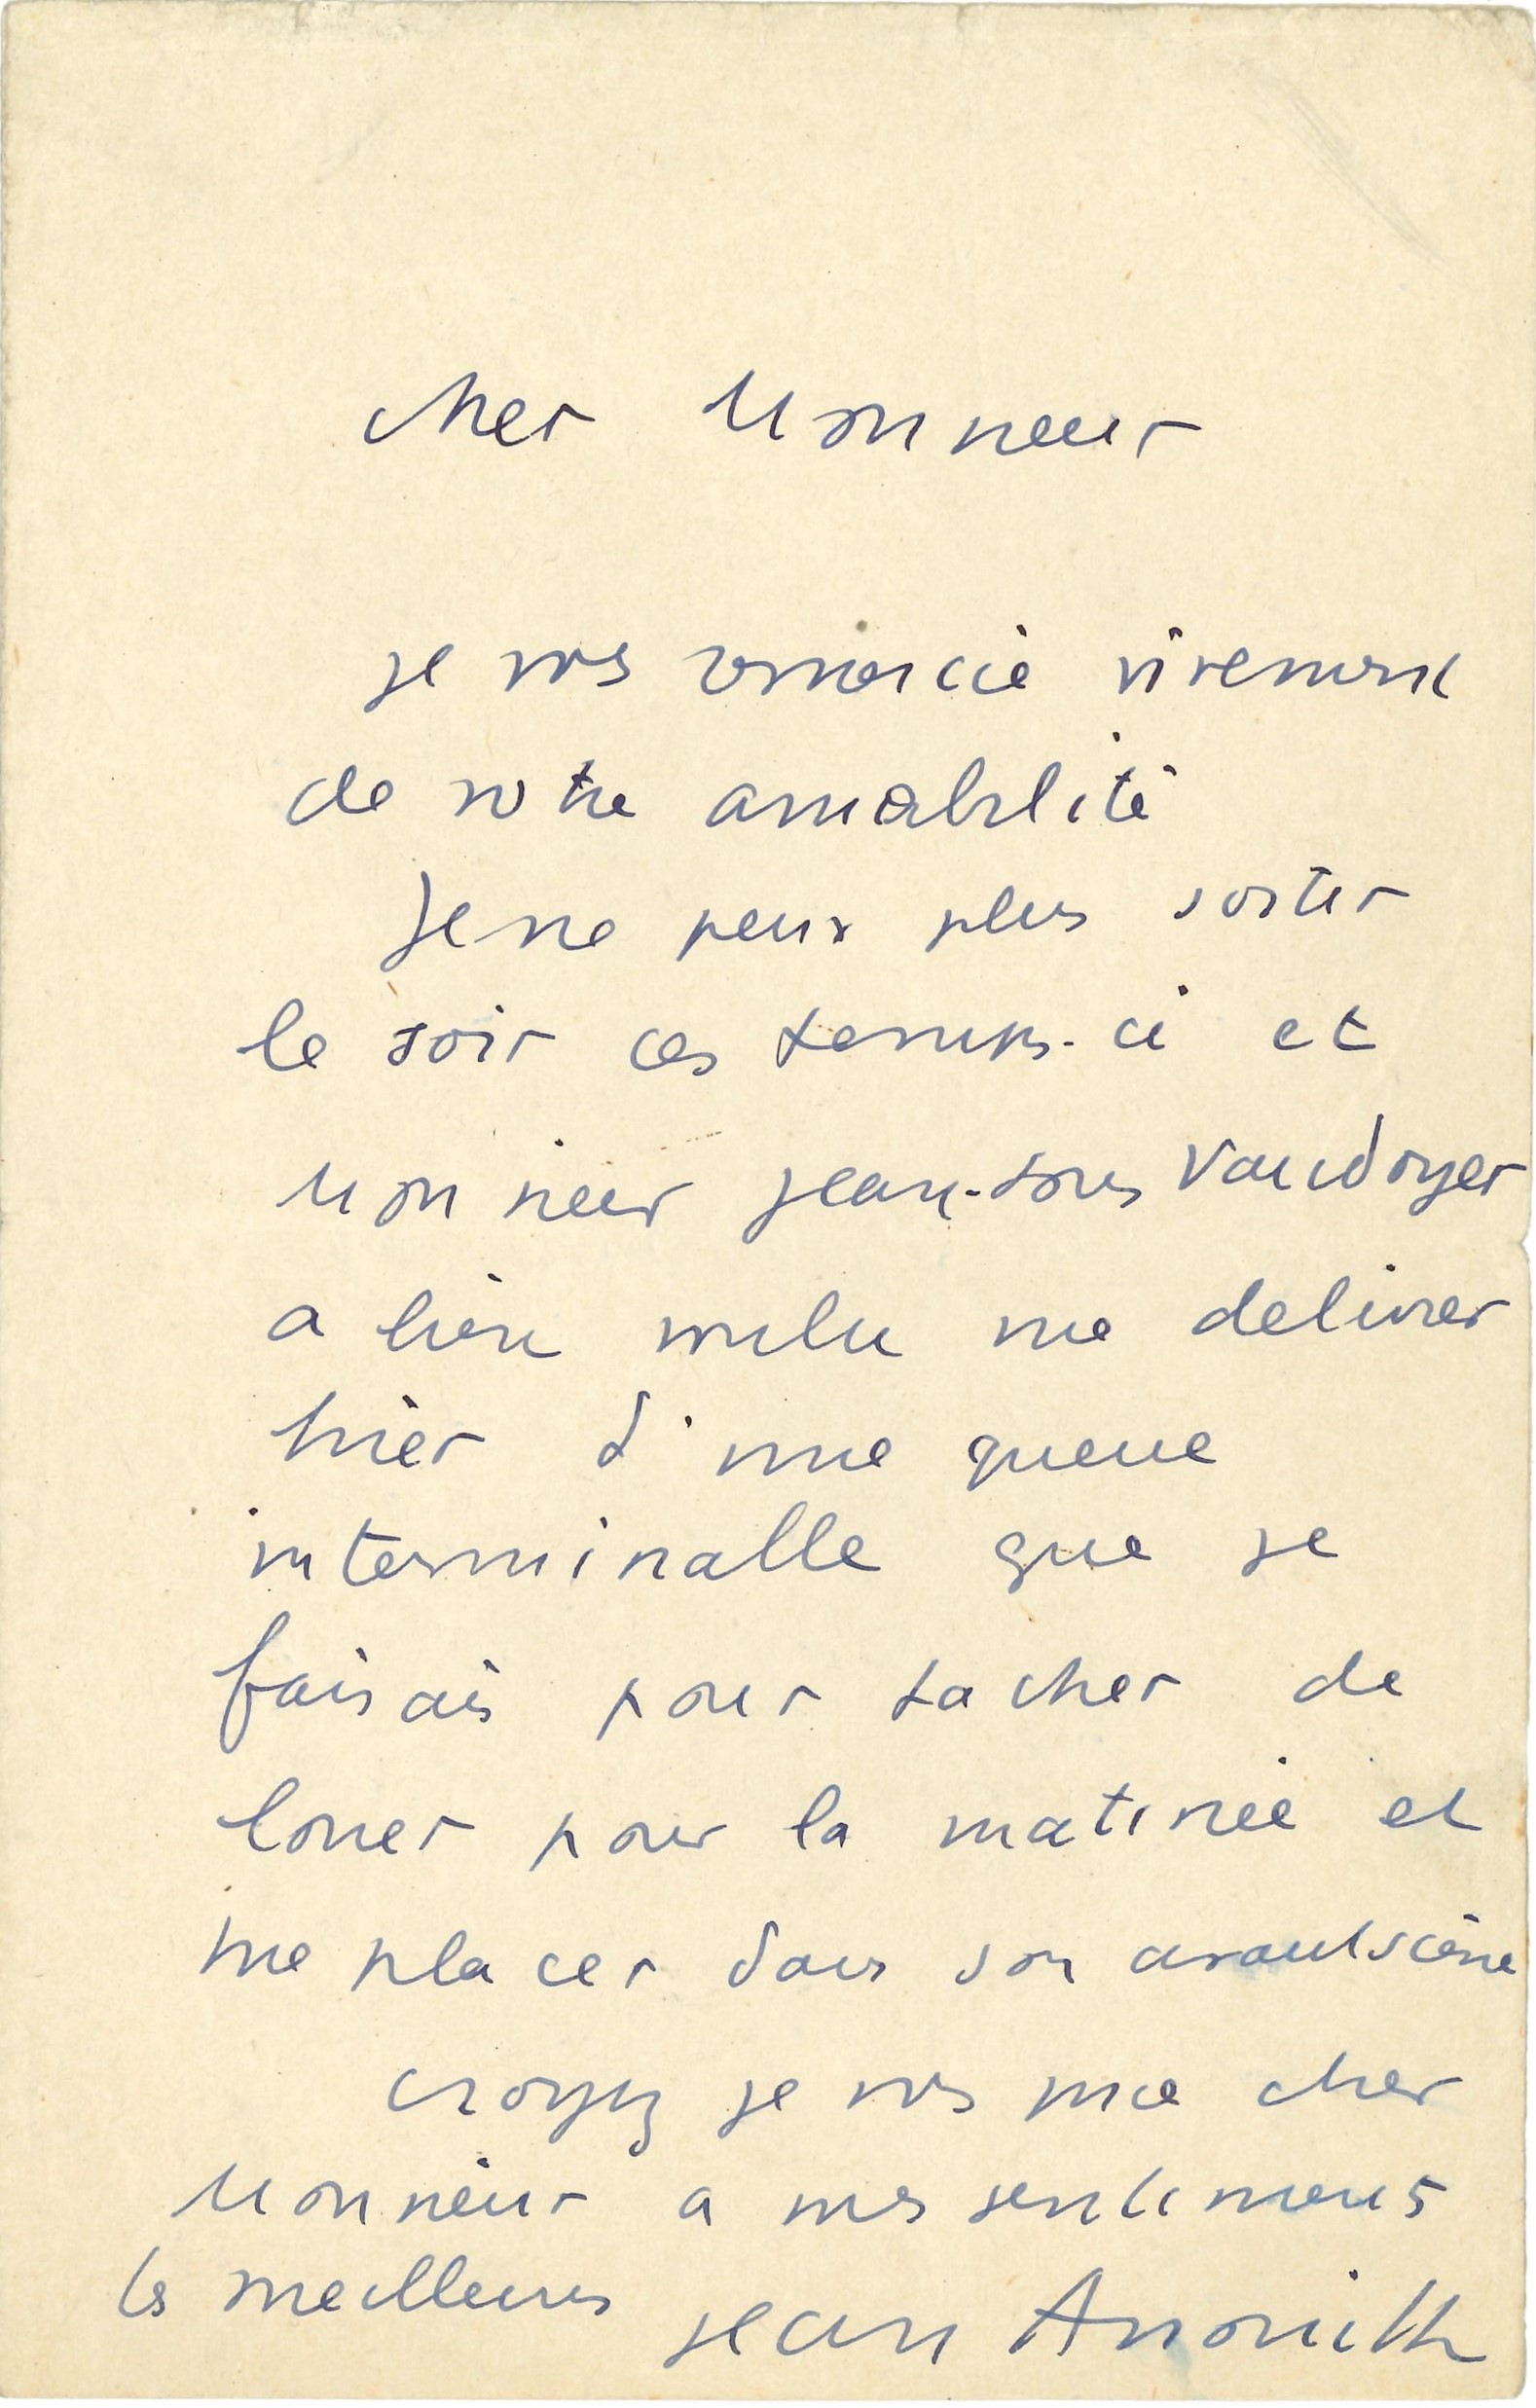 cher Monsieur
je vous remercie vivement
de votre amabilité
Je ne peux plus sortir
le soir ces temps-ci et
Monsieur Jean-Louis Vaudoyer
a bien voulu me delivrer
hier d'une queue
interminable que je
faisais pour tacher de
louer pour la matinée et
me placer dans son avant scène
croyez je vous prie cher
Monsieur a mes sentiments
les meilleurs Jean Anouilh